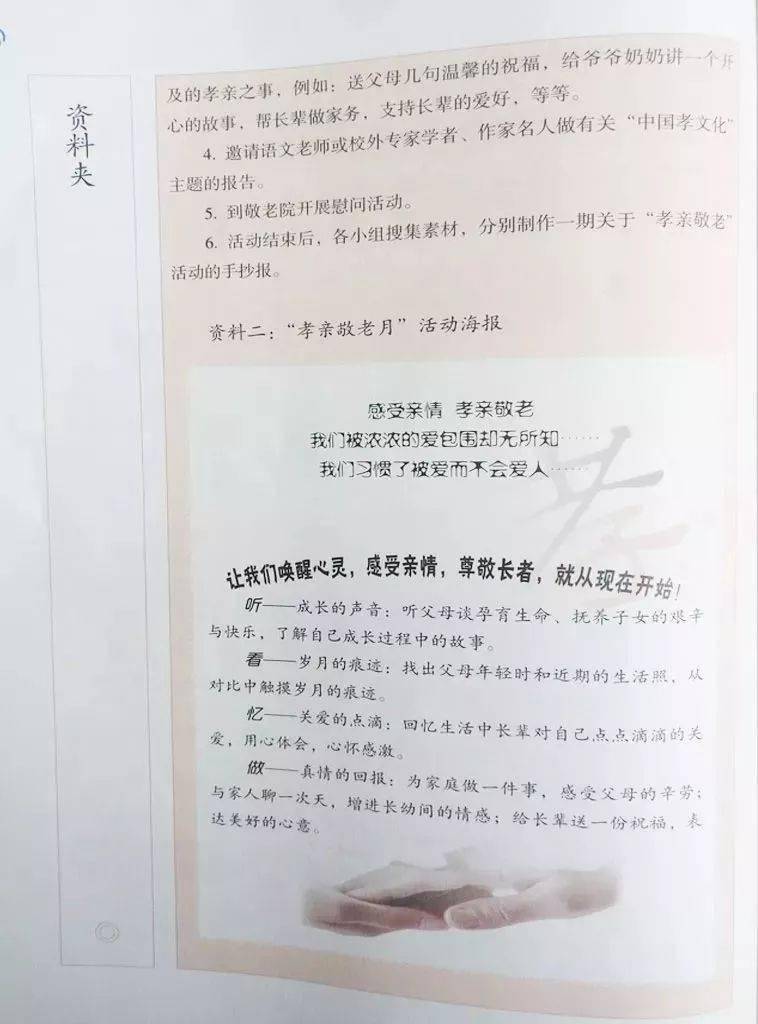 资料夹
及的孝亲之事，例如：送父母几句温馨的祝福，给爷爷奶奶讲一个开
心的故事，帮长辈做家务，支持长辈的爱好，等等。
4. 邀请语文老师或校外专家学者、作家名人做有关“中国孝文化”
主题的报告。
5. 到敬老院开展慰问活动。
6. 活动结束后，各小组搜集素材，分别制作一期关于“孝亲敬老”
活动的手抄报。
资料二：“孝亲敬老月”活动海报
感受亲情 孝亲敬老
我们被浓浓的爱包围却无所知……
我们习惯了被爱而不会爱人……
孝
让我们唤醒心灵，感受亲情，尊敬长者，就从现在开始！
听——成长的声音：听父母谈孕育生命、抚养子女的艰辛
与快乐，了解自己成长过程中的故事。
看——岁月的痕迹：找出父母年轻时和近期的生活照，从
对比中触摸岁月的痕迹。
忆——关爱的点滴：回忆生活中长辈对自己点点滴滴的关
爱，用心体会，心怀感激。
做——真情的回报：为家庭做一件事，感受父母的辛劳；
与家人聊一次天，增进长幼间的情感；给长辈送一份祝福，表
达美好的心意。